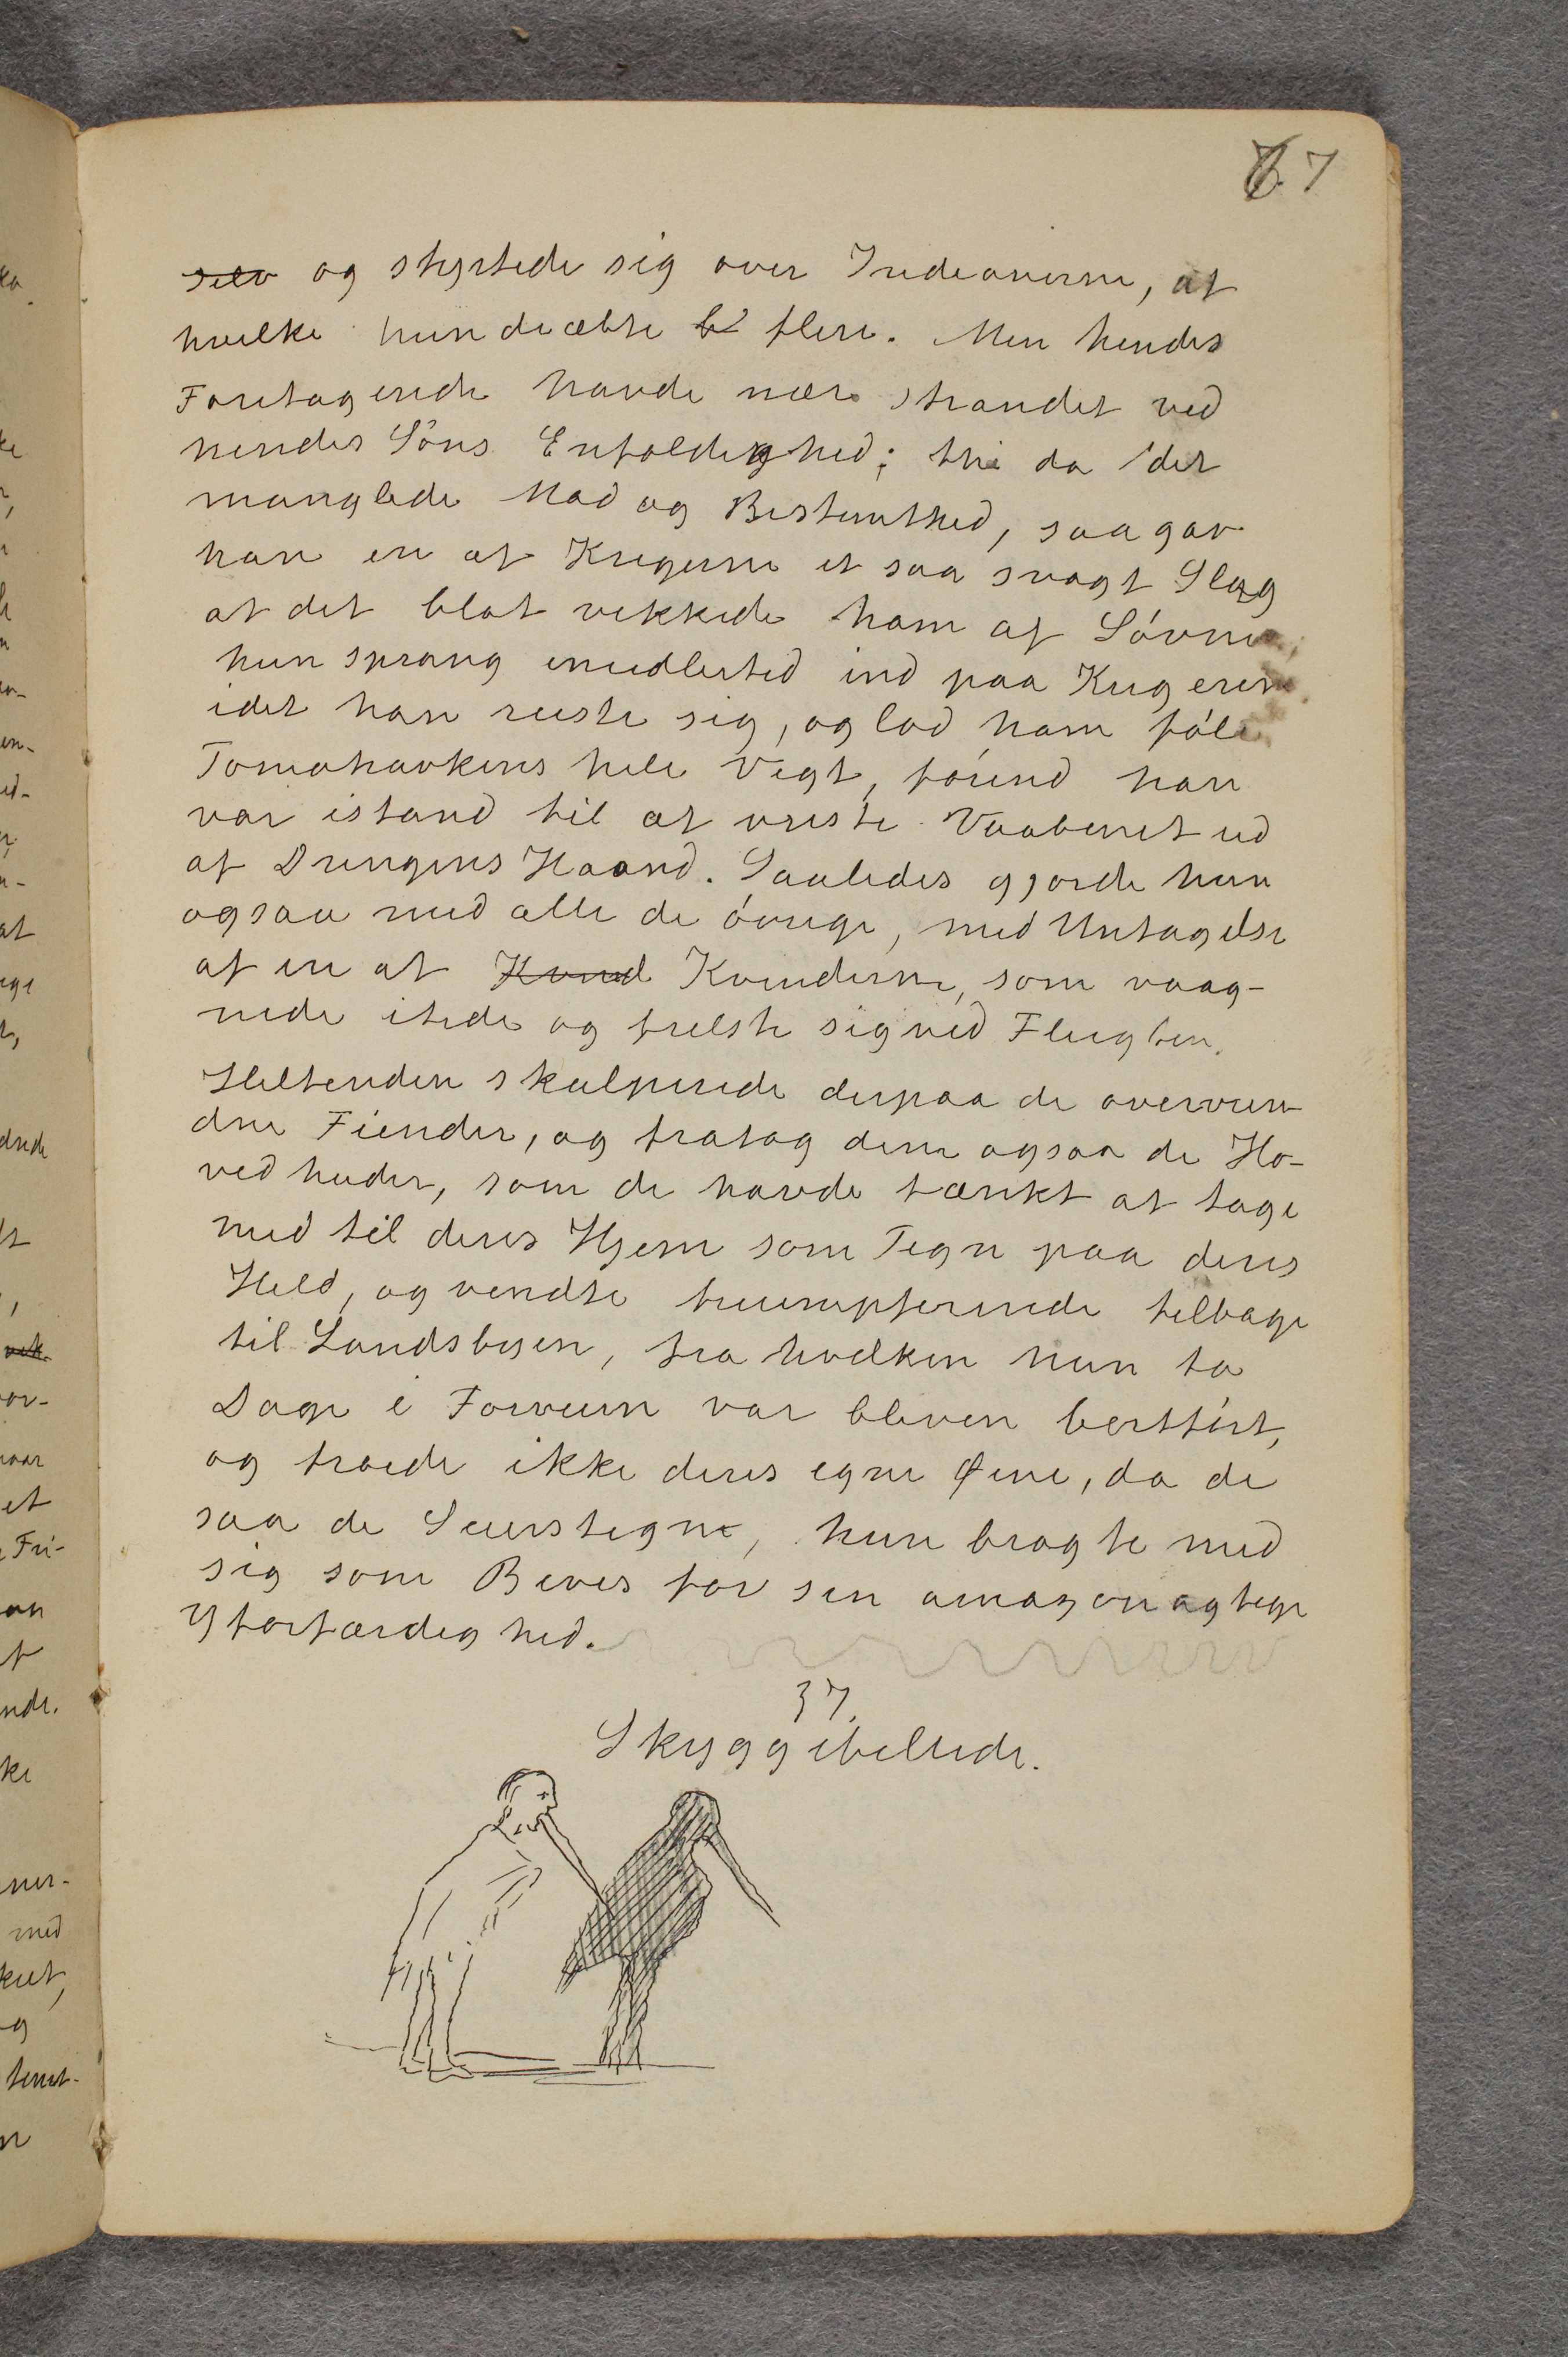 7
selv og styrtede sig over Indeanerne, af
hvilke hun dræbte flere. Men hendes
Foretagende havde nær strandet ved
hendes Söns Enfoldighed; thi da det
manglede Mod og Bestemthed, saa gav
han en af Krigerne et saa svagt Slag
at det blot vekkede ham af Sövne,
hun sprang imedlertid ind paa Krigeren
idet han reiste sig, og lod ham föle
Tomahavkens hele Vegt, förend han
var istand til at vriste Vaabenet ud
af Drengens Haand. Saaledes gjorde hun
ogsaa med alle de övrige, med Untagelse
af en af Kvind Kvinderne, som vaag-
nede itide og frelste sig ved Flugten.
Heltenden skalperede derpaa de overvun-
dne Fiender, og fratog dem ogsaa de Ho-
vedhuder, som de havde tænkt at tage
med til deres Hjem som Tegn paa deres
Held, og vendte triumpferende tilbage
til Landsbyen, fra hvilken hun to
Dage i Forveien var bleven bortfört,
og troede ikke deres egne Øine, da de
saa de Seierstegn, hun bragte med
sig som Bevis for sin amazonagtige
Uforfærdighed.
37.
Skyggebillede.